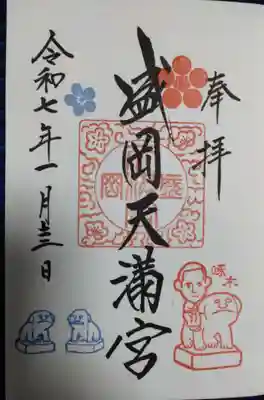 奉拝
啄木
盛岡天満宮
令和七年一月十三日